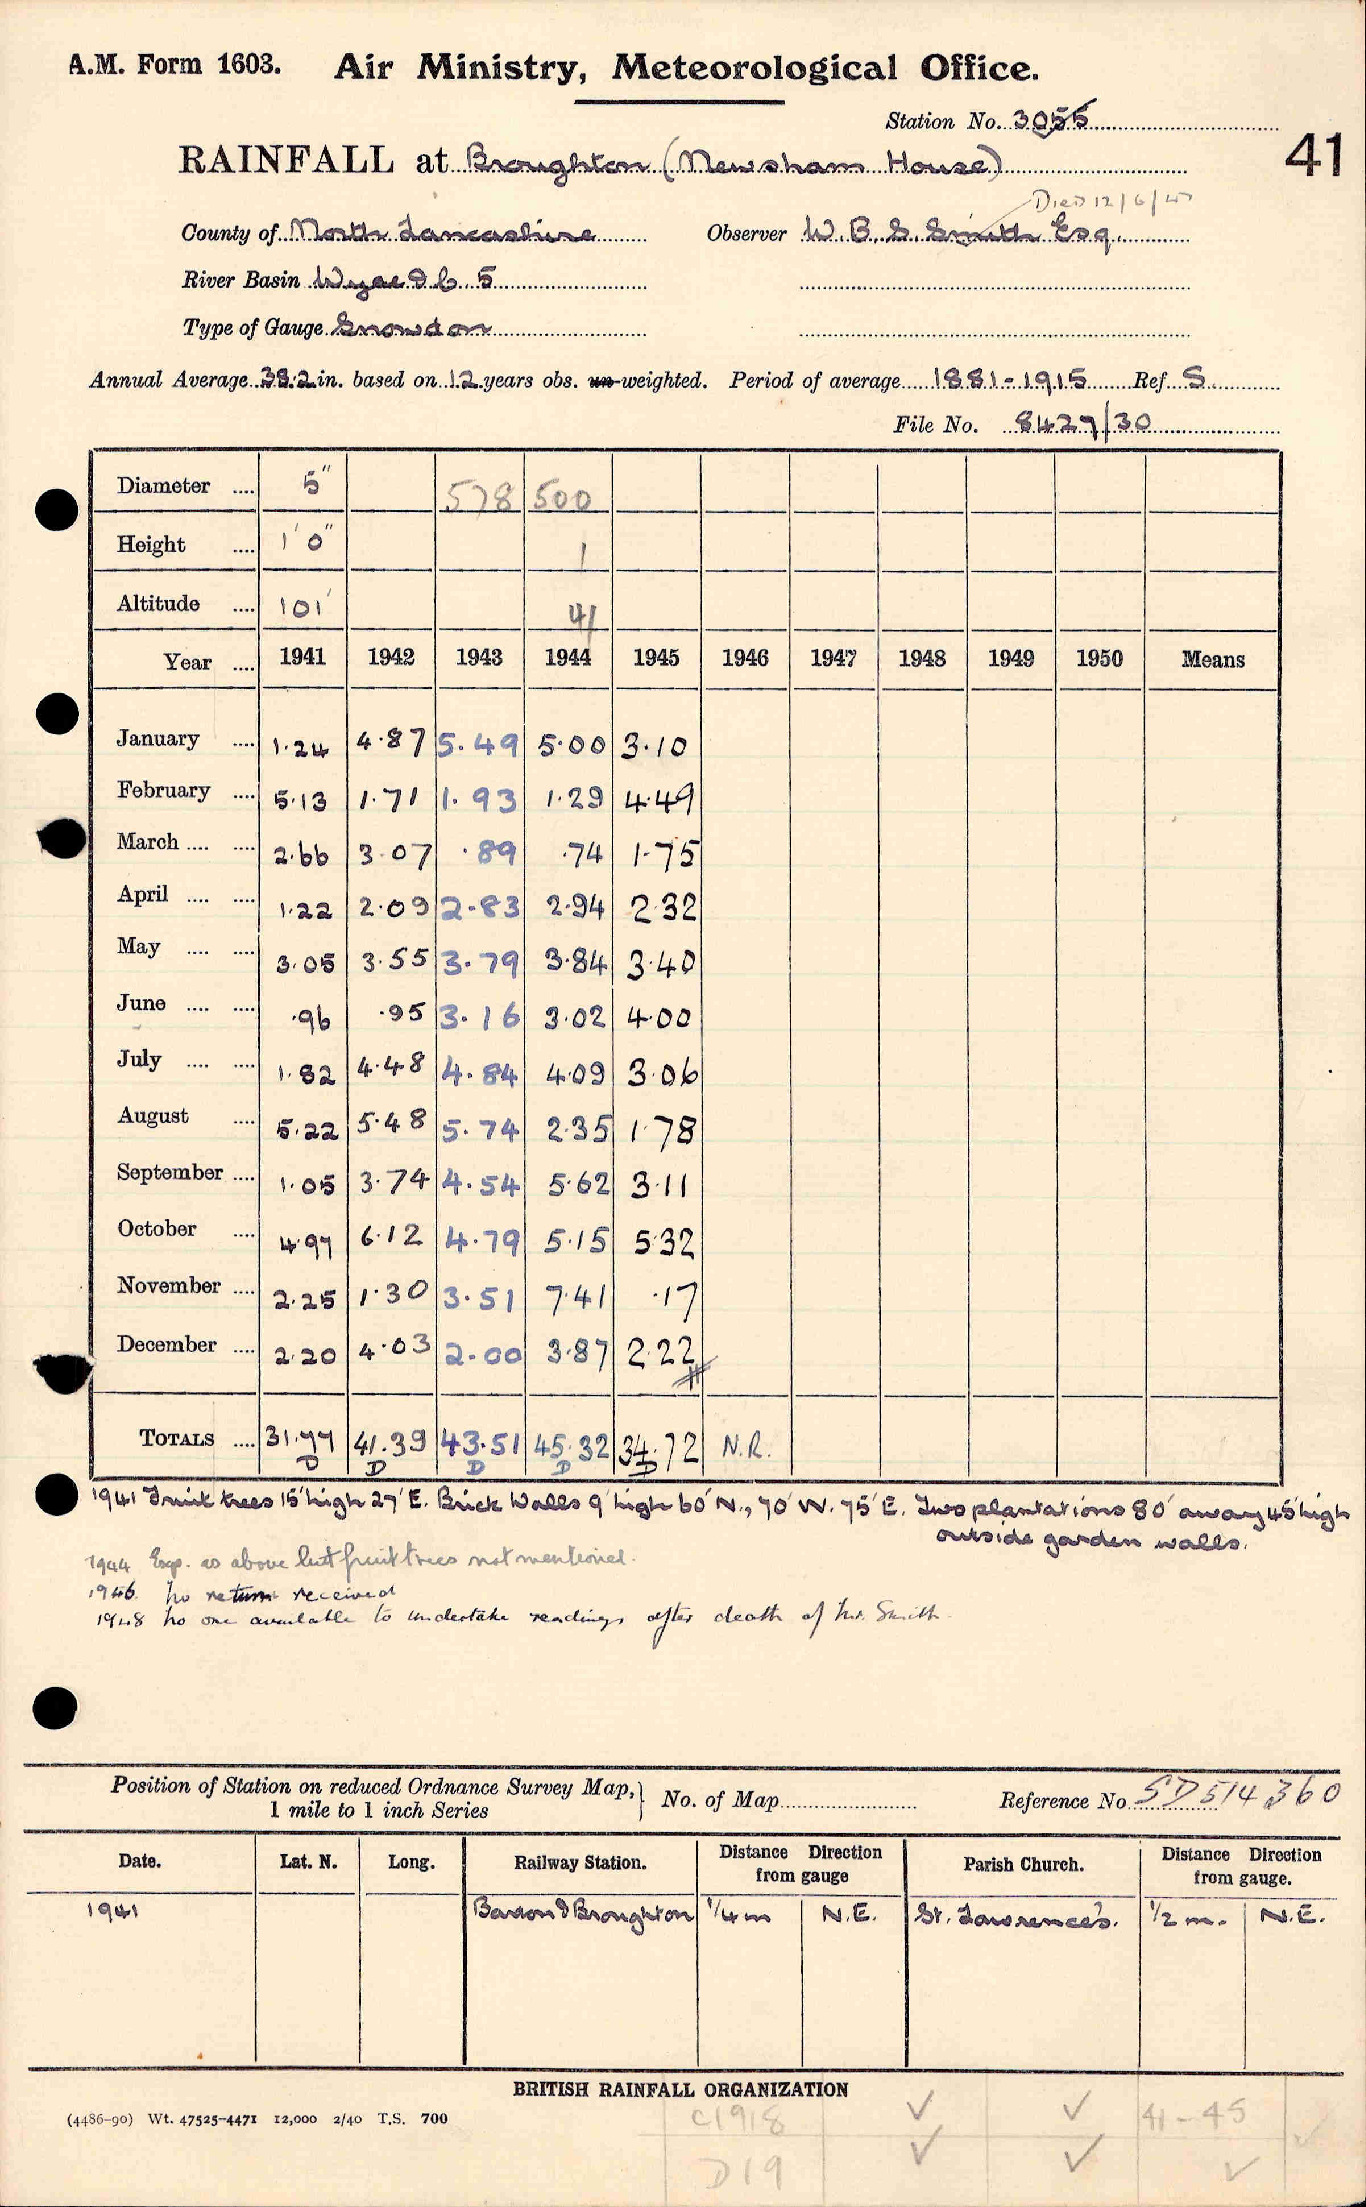 A.M. Form 1603. Air Ministry, Meteorological Office.
Station No. 3055
41
RAINFALL at Broughton (Newsham House)
Died 12/6/47
County of North Lancashire Observer W. B. S. Smith Esq.
River Basin Wyre & C. 5
Type of Gauge Snowdon
Annual Average 38.2 in. based on 12 years obs. un-weighted. Period of average 1881-1915 Ref. S.
File No. 8427/30
Diameter .... 5" 578 500
Height .... 1' 0" 1
Altitude .... 101' 41
Year .... 1941 1942 1943 1944 1945 1946 1947 1948 1949 1950 Means
January .... 1.24 4.87 5.49 5.00 3.10
February .... 5.13 1.71 1.93 1.29 4.49
March .... .... 2.66 3.07 .89 .74 1.75
April .... .... 1.22 2.09 2.83 2.94 2.32
May .... .... 3.05 3.55 3.79 3.84 3.40
June .... .... .96 .95 3.16 3.02 4.00
July .... .... 1.82 4.48 4.84 4.09 3.06
August .... 5.22 5.48 5.74 2.35 1.78
September .... 1.05 3.74 4.54 5.62 3.11
October .... 4.97 6.12 4.79 5.15 5.32
November .... 2.25 1.30 3.51 7.41 .17
December .... 2.20 4.03 2.00 3.87 2.22
TOTALS .... 31.77 41.39 43.51 45.32 34.72 N.R.
D D D D D
1941 Fruit trees 15' high 27' E. Brick Walls 9' high 60' N., 70' W. 75' E. Two plantations 80' away 45' high
outside garden walls.
1944 Exp. as above but fruit trees not mentioned.
1946. No return received
1948 No one available to undertake readings after death of Mr. Smith.
Position of Station on reduced Ordnance Survey Map, 1 mile to 1 inch Series } No. of Map Reference No. SD 514 360
Date. Lat. N. Long. Railway Station. Distance Direction from gauge Parish Church. Distance Direction from gauge.
1941 Barton & Broughton 1/4 m N.E. St. Lawrence's. 1/2 m. N.E.
BRITISH RAINFALL ORGANIZATION
(4486-90) Wt. 47525-4471 12,000 2/40 T.S. 700
C1918 ✓ ✓ 41-45
D19 ✓ ✓ ✓